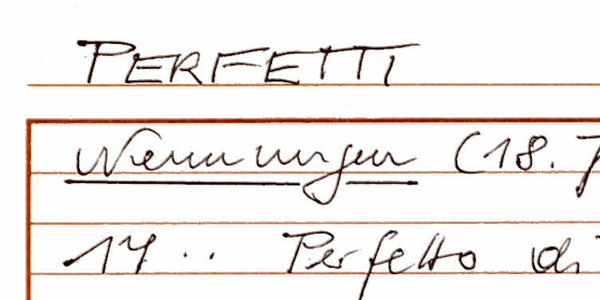 PERFETTI
Nennungen (18.
17.. Perfetto di